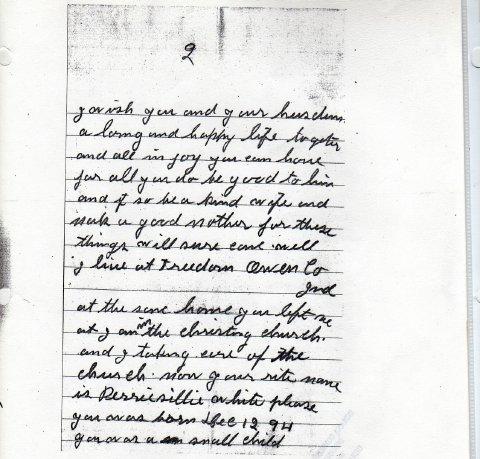 2
I wish you and your husdum
a long and happy life together
and all in joy you can have
for all you do be good to him
and if so be a kind wife and
mak a good mother for these
things will sure come well
I live at Freedom Owen Co
Ind
at the same home you left me
at I am in the christing church.
and I taking cere of the
church now your rite name
is white please
you was born Dec 12 94
you was a small child